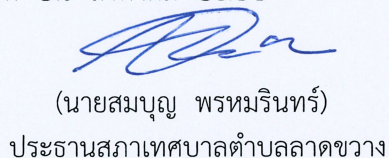 (นายสมบุญ พรหมรินทร์)
ประธานสภาเทศบาลตำบลลาดขวาง